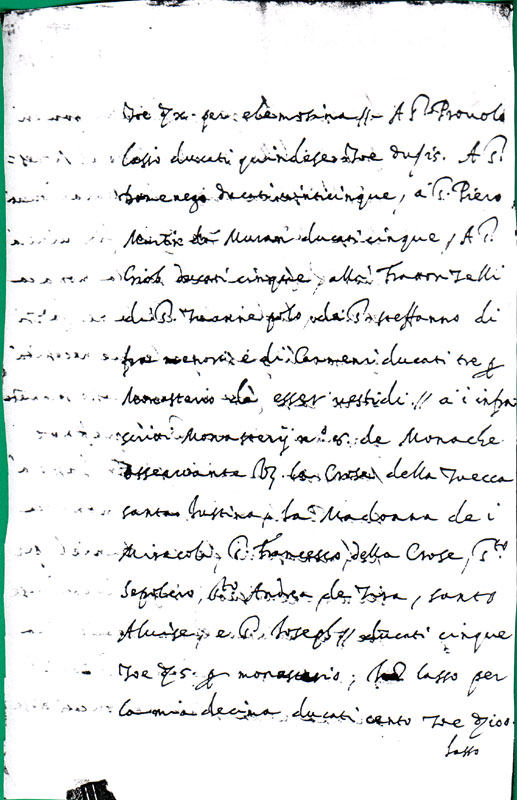 Zoe d. x. per elemosina // A S.ta Provolo
lasso ducati quindese Zoe du. 15. A S.
Domenego ducati vinticinque, à S. Piero
Martir da Muran ducati cinque, A S.
Giob ducati cinque, alli Frari Zelli
di S. Zuanne polo, da S. Steffanno di
fra menori e di Carmeni ducati tre p
Monasterio da esser vestidi // a i infra
scritti Monasterij n.o 8. de Monache
osservante la Crose della Zuecca
santa Iustina, la Madonna de i
Miracoli, S. Francesco della Crose, S.to
Sepolcro, S.to Andrea de Zira, santo
Aluise, e S. Ioseph // ducati cinque
Zoe d. 5. p monasterio; lasso per
la mia decima ducati cento Zoe d. 100.
lasso